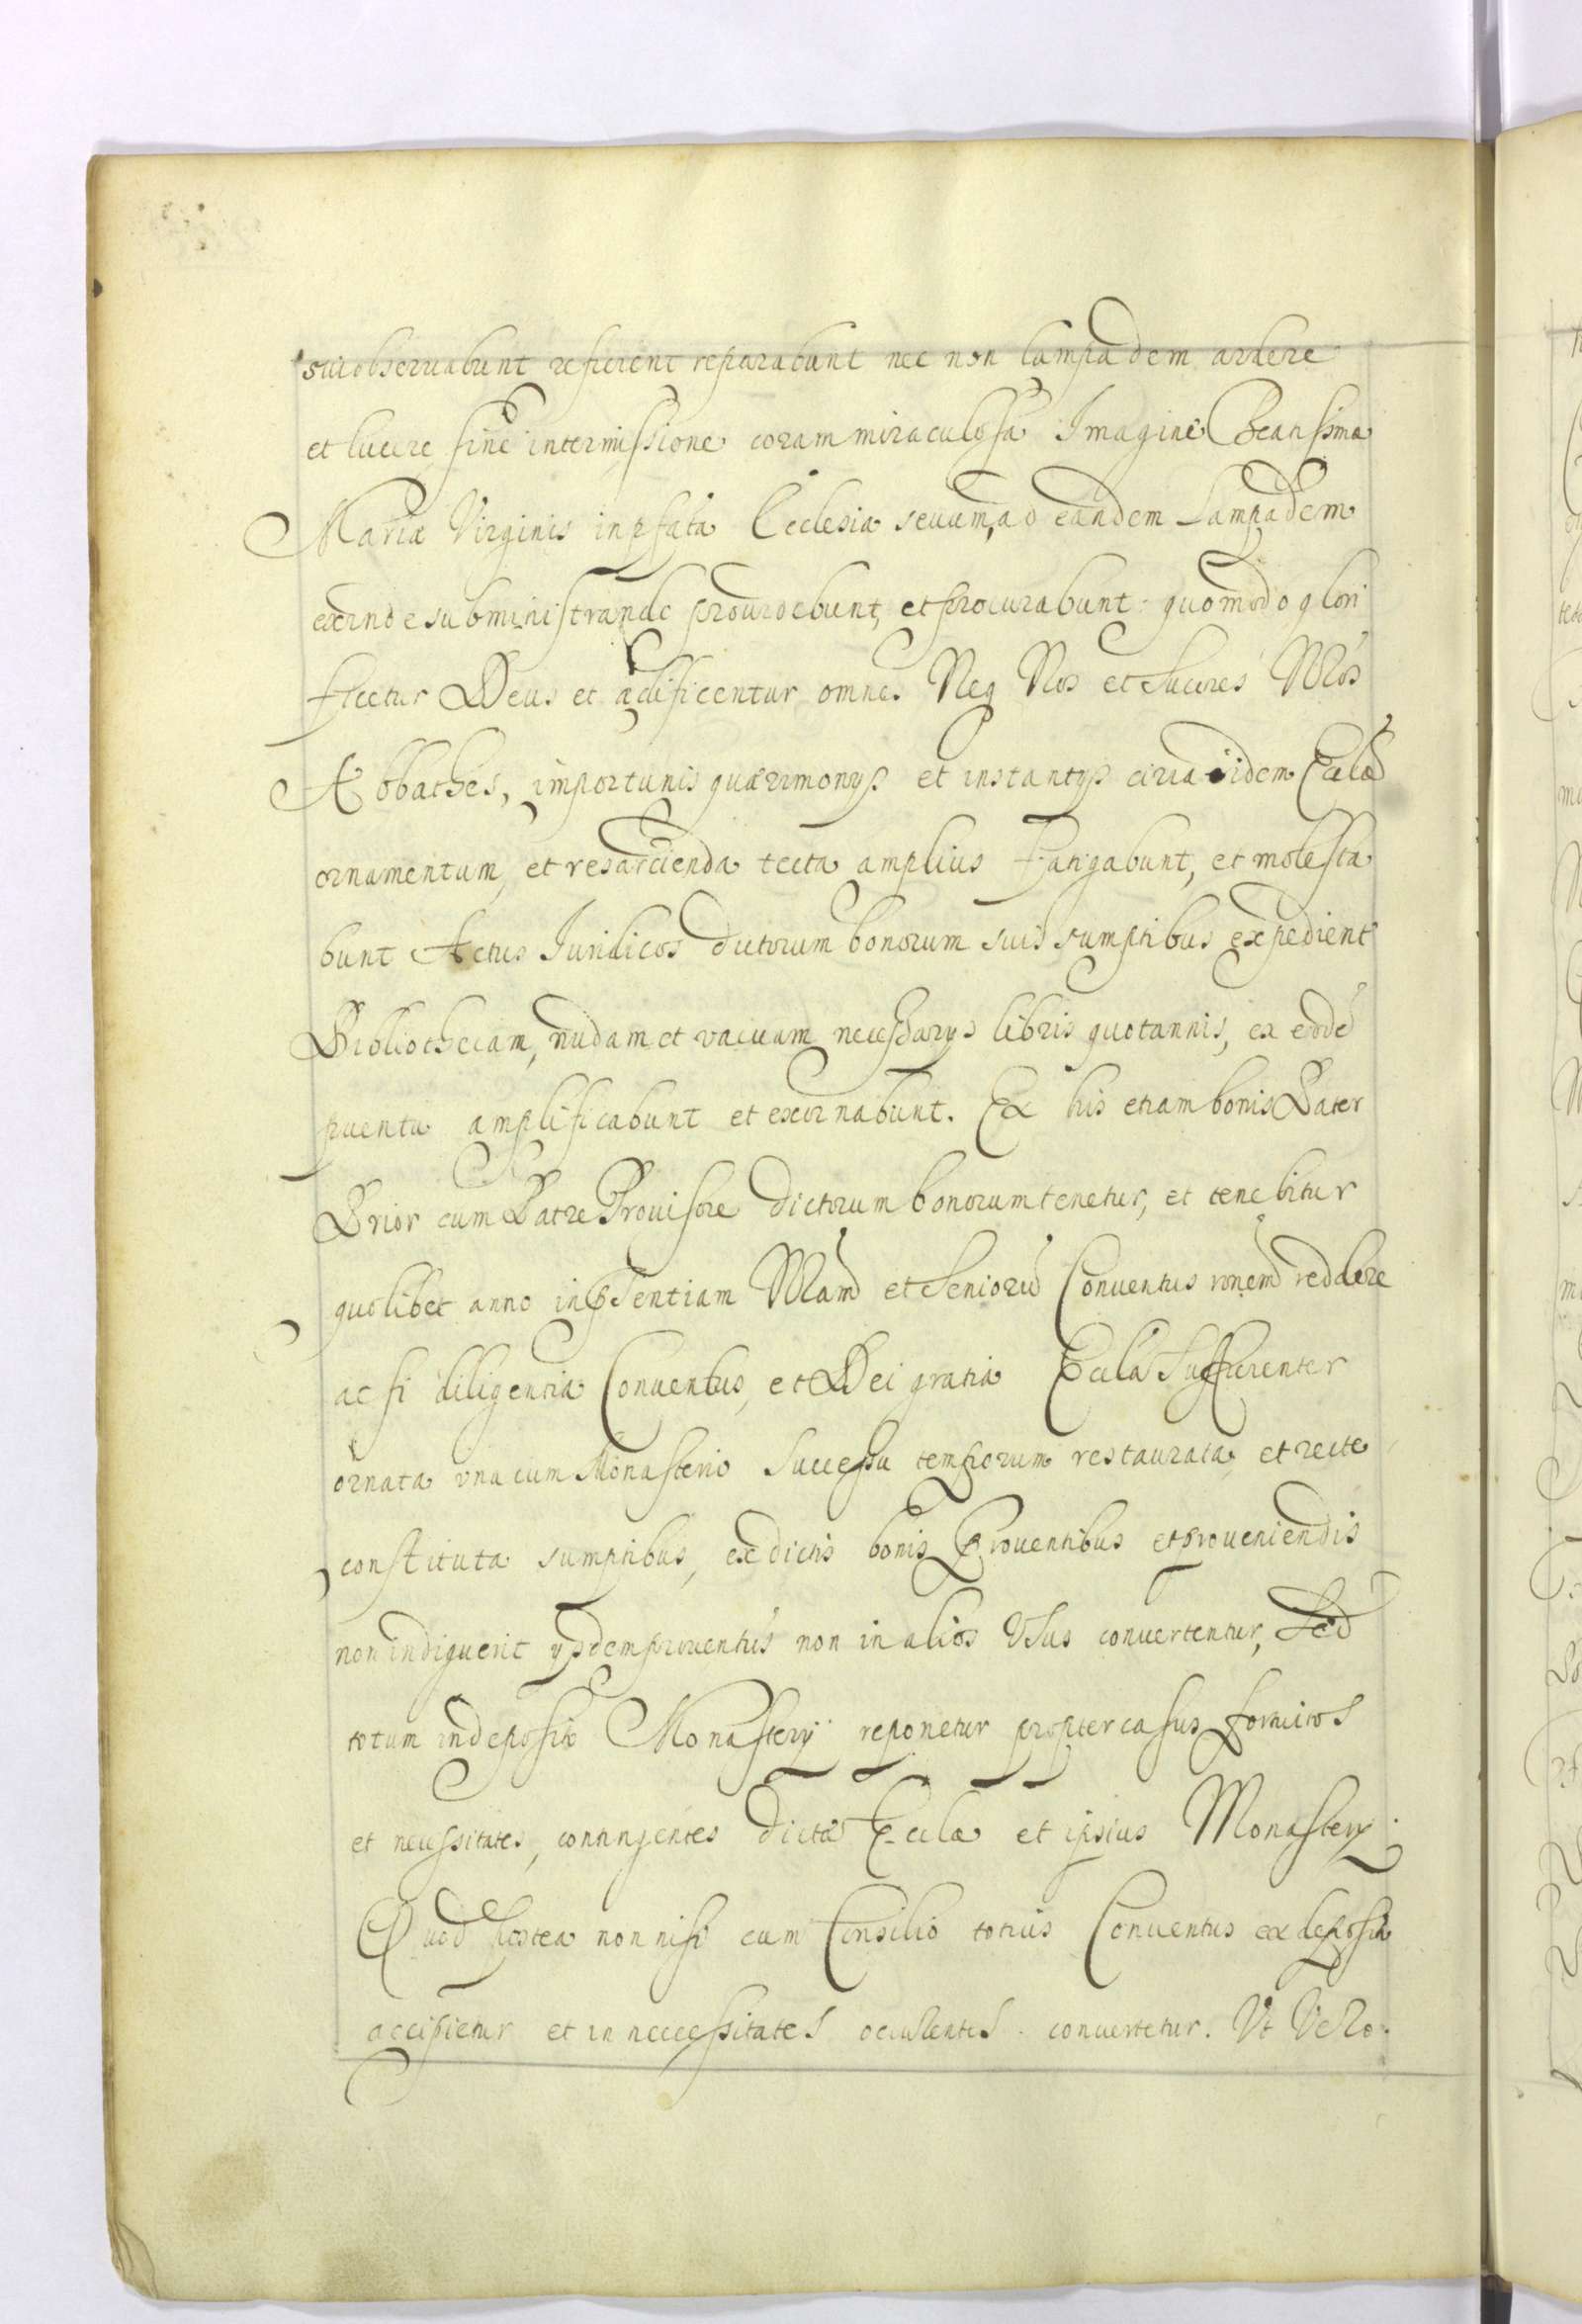 suu observabunt reficient reparabunt nec non lampadem ardere
et lucere sine intermissione coram miraculosa Imagine Beatissima
Mariæ Virginis in pfata Ecclesia sevum, ad eandem Lampadem
exinde subministrande providebunt, et procurabunt: quomodo glori
ficetur Deus et ædificentur omnes Neq Nos et Succres Nros
Abbathes, importunis quærimonys et instantys circa eidem Eccla
ornamentum, et resarcienda tecta amplius Fatigabunt, et molesta
bunt Actus Juridicos dictorum bonorum suis sumptibus expedient
Bibliothecam, nudam et vacuam necessarys libris quotannis, ex eodē
pventu amplificabunt et exornabunt. Ex his etiam bonis Pater
Prior cum Patre Provisore dictorum bonorum tenetur, et tenebitur
quolibet anno in psentiam Nram et Seniorū Conventus ronem reddere
ac si diligentia Conventus, et Dei gratia Eccla Sufficienter
ornata una cum Monasterio Successu temporum restaurata, et recte
constituta sumptibus, ex dictis bonis Proventibus et proveniendis
non indiguerit ysdem proventus non in alios Usus convertentur, Sed
totum in deposito Monastery reponetur propter casus fortuitos
et necessitates, contingentes dictæ Ecclæ et ipsius Monastery.
Quod postea non nisi cum Consilio totius Conventus ex deposito
accipietur et in neccessitates occurentes convertetur. Ut Vero